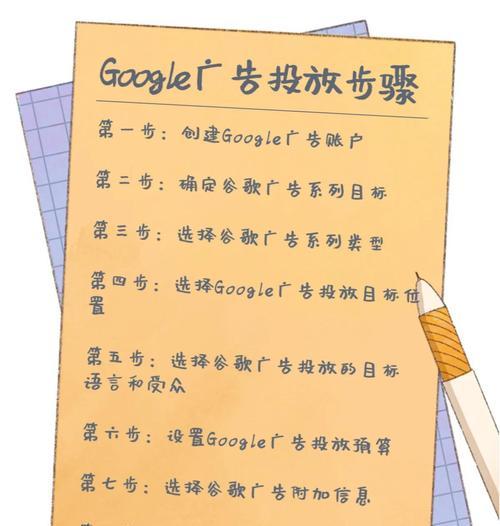 Google广告投放步骤
第一步：创建Google广告账户
第二步：确定谷歌广告系列目标
第三步：选择谷歌广告系列类型
第四步：选择Google广告投放目标位
置
第五步：选择谷歌广告投放的目标
语言和受众
第六步：设置Google广告投放预算
第七步：选择谷歌广告附加信息